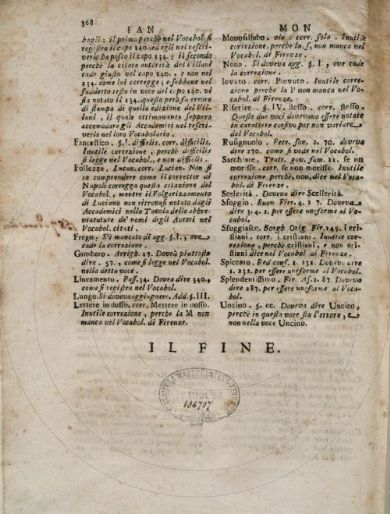 368
FAN
MON
bugli: il primo perchè nel Vocabol. si
registra il capo 140. ed egli nel roveri-
verlo ha posto il capo 134.; il secondo
perchè la citata autorità del Villani
cade giusto nel capo 140., e non nel
134. come lui corregge; e sebbene nel
suddetto testo in vece del c. po 140. vi
sia notato il 134. questo però sia errore
di stampa di quella edizione del Villa-
ni, il quale ottimamente seppero
accomodare gli Accademici nel reser-
verlo nel loro Vocabolario.
Fantastico. §. difficili. corr. difficilis.
Inutile correzione, perchè difficile
si legge nel Vocabol., e non difficili.
Follezza. Lucan. corr. Lucian. Non si
sa comprendere come il correttor di
Napoli corregga questa citazione del
Vocabol., mentre il Volgarizzamento
di Luciano non ritrovasi notato dagli
Accademici nella Tavola delle abbre-
viature de' nomi degli Autori nel
Vocabol. citati.
Frego. S'è mancato di agg. §. I., ove
cade la correzione.
Gambero. Arrigh. 27. Dovea piuttosto
dire. 57., come si legge nel Vocabol.
nella detta voce.
Lineamento. Pass. 34. Dovea dire 340.,
come si registra nel Vocabol.
Lungo. Si doveva aggiugnere. Add. §. III.
Lettere in dosso. corr. Mettere in dosso.
Inutile correzione, perchè la M non
manca nel Vocabol. di Firenze.
Monosillabo. ola. corr. sola. Inutile
correzione, perchè la s, non manca nel
Vocabol. di Firenze.
Nono. Si doveva agg. §. I, ove cade
la correzione.
iovuto. corr. Piovuto. Inutile corre-
zione perchè la P non manca nel Vo-
cabol. di Firenze.
Riferire. §. IV. stesso. corr. stesso.
Queste due voci dovevano essere notate
in carattere corsivo per non variare
del Vocabol.
Rusignuolo. Petr. son. 2. 70. dovea
dire 270. come si vede nel Vocabol.
Sarchiare. Tratt. gov. fam. 21. se un
morisse. corr. se non morisse. Inutile
correzione, perchè, non, dice nel Voca-
bol. di Firenze.
Scelerità. Doveva dire Scellerità.
Sfoggio. Buon Fier. 4. 2 7. Doveva
dire 3. 4. 2. per essere uniforme al Vo-
cabol.
Sfuggiasco. Borgh Orig Fir 149. i cri
stiani, corr. i cristiani. Inutile cor-
rezione, perchè cristiani, e non cri-
stiani dice nel Vocabol di Firenze.
Spiccato. Red conf. 1. 131. Doveva dire
1. 232. per essere uniforme al Vocabol.
Splendentissimo. Fir. As. 2. 87. Doveva
dire 287. per essere uniforme al Voca-
bol.
Uncino. §. ec. Doveva dire Uncico,
perchè in questa voce sta l'errore, e
non nella voce Uncino.
IL FINE.